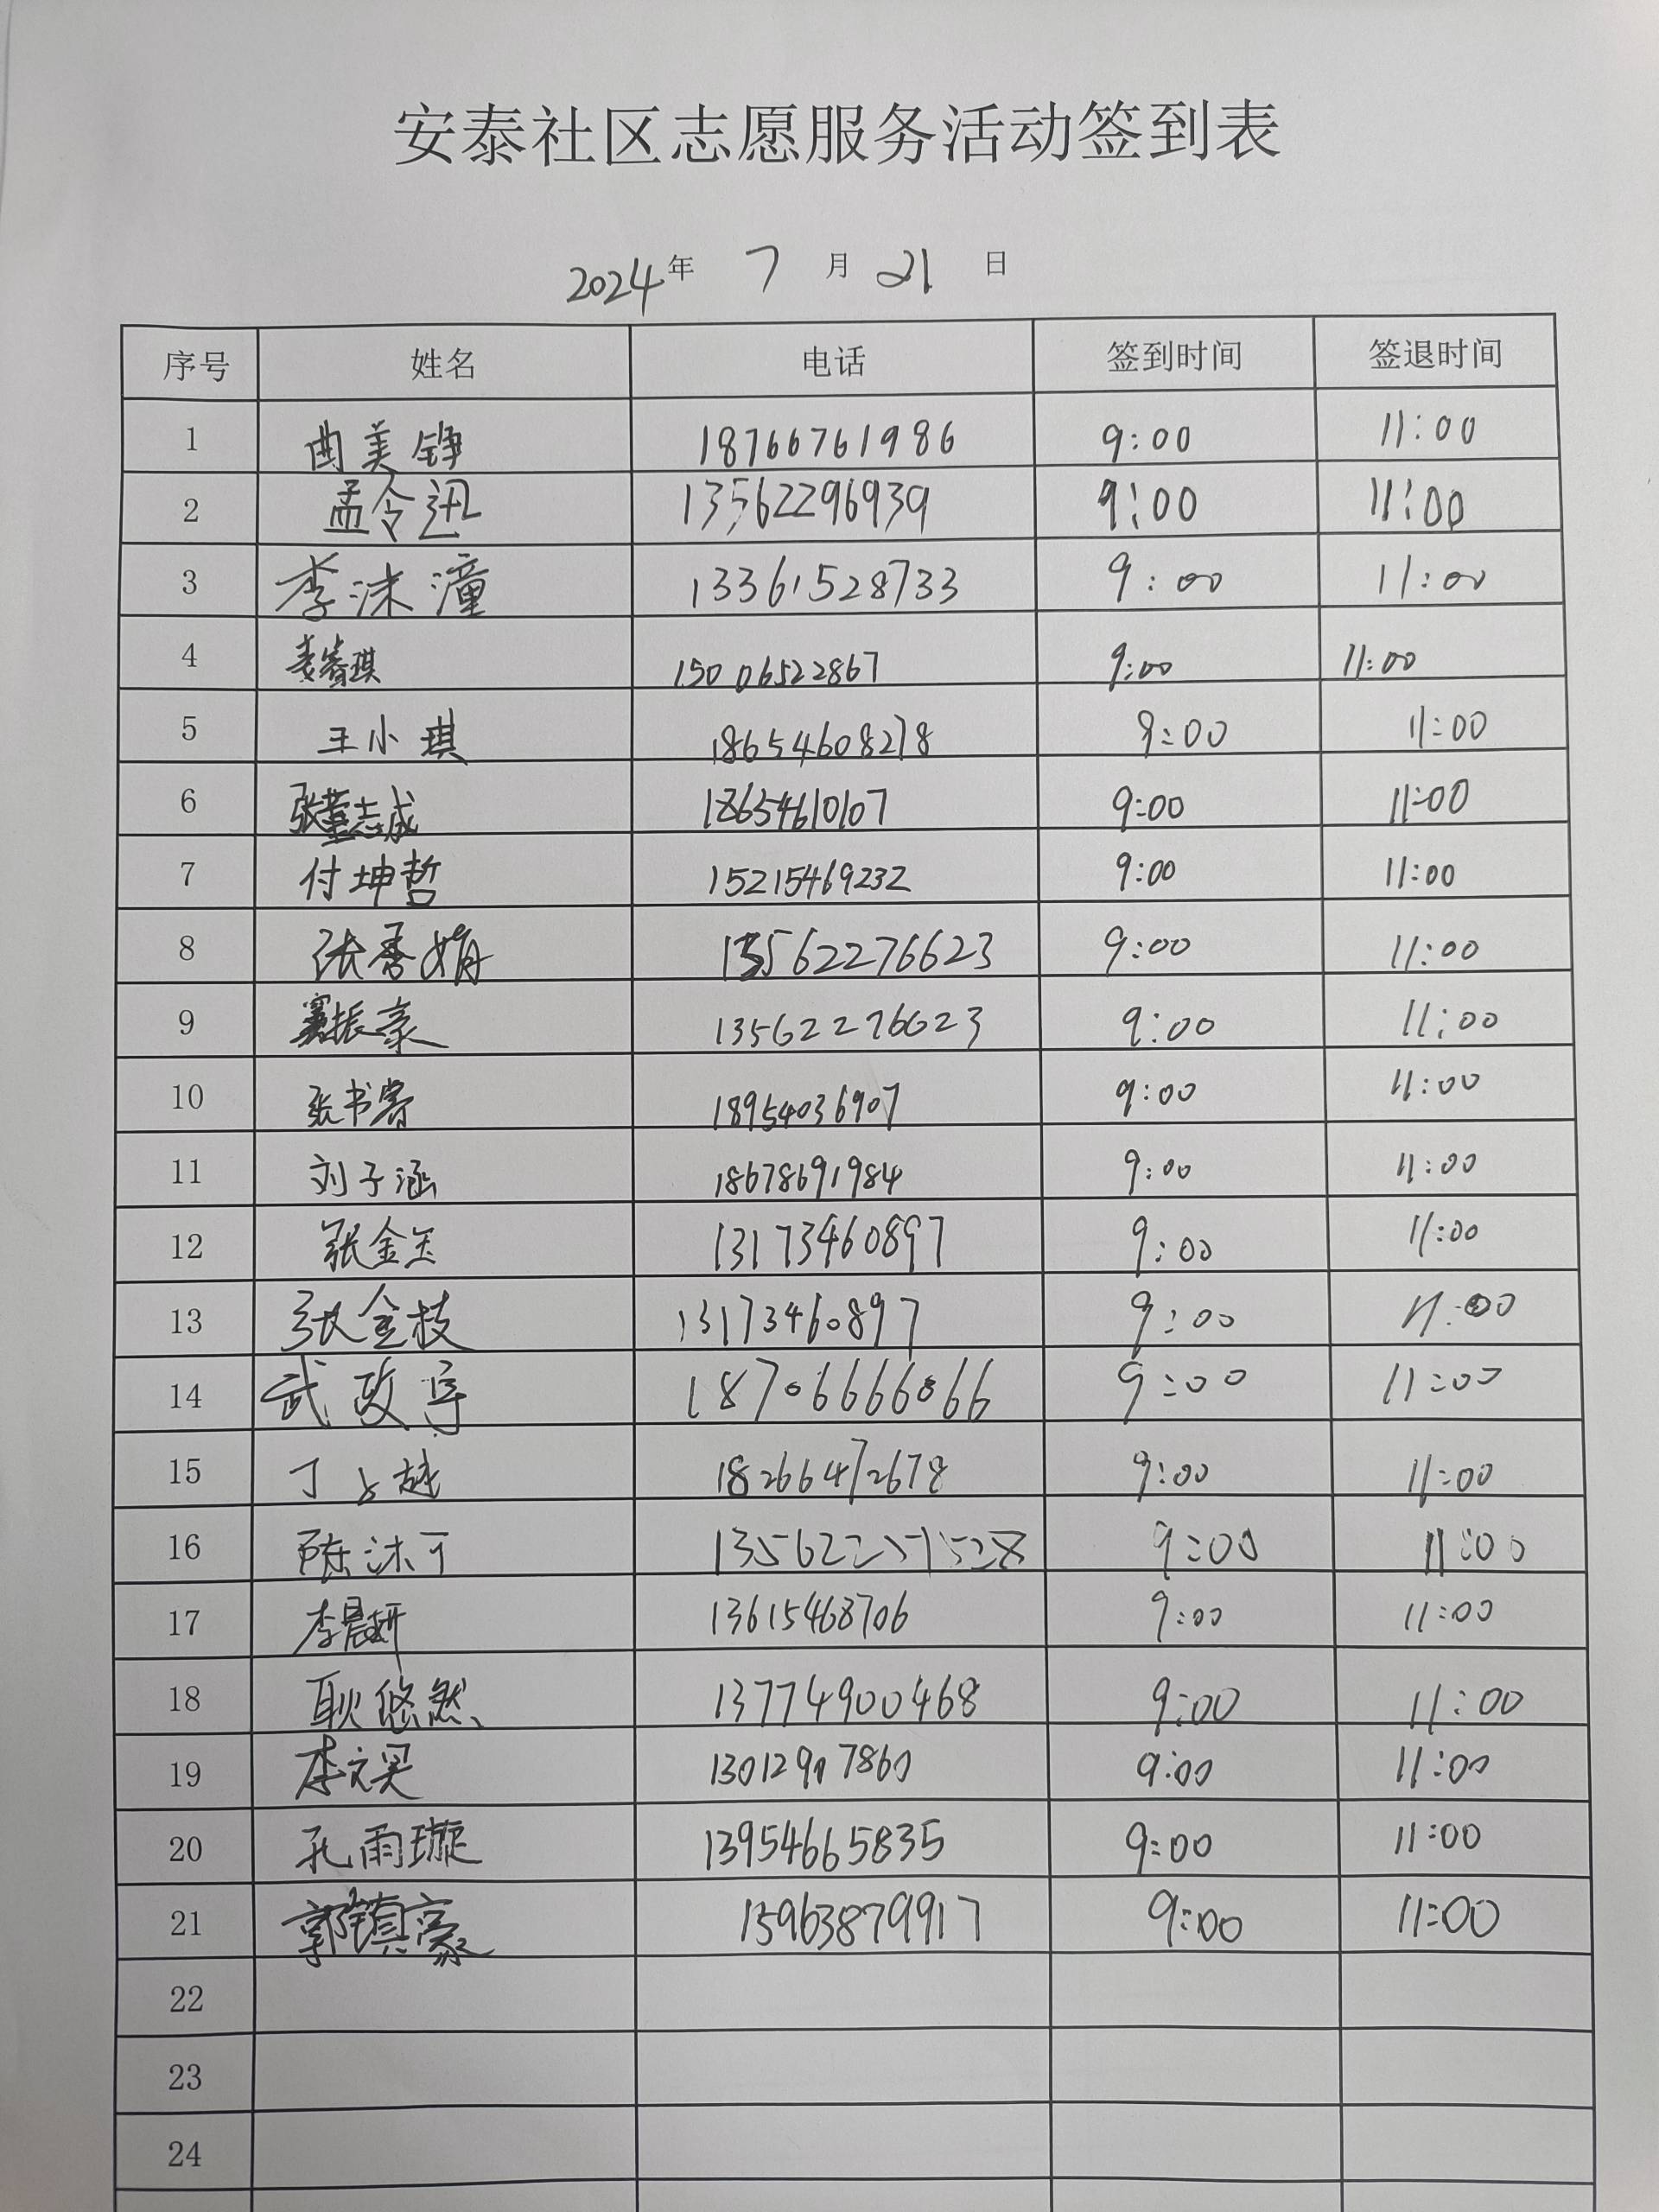 安泰社区志愿服务活动签到表
2024年 7 月 21 日
序号 姓名 电话 签到时间 签退时间
1 曲美铮 18766761986 9:00 11:00
2 孟令迅 13562296939 9:00 11:00
3 李沫潼 13361528733 9:00 11:00
4 姜睿琪 15006522867 9:00 11:00
5 王小琪 18654608218 9:00 11:00
6 张董志成 18654610107 9:00 11:00
7 付坤哲 15215469232 9:00 11:00
8 张秀娟 13562276623 9:00 11:00
9 振豪 13562276623 9:00 11:00
10 张书 18954036907 9:00 11:00
11 刘子涵 18678691984 9:00 11:00
12 张金玉 13173460897 9:00 11:00
13 张金枝 13173460897 9:00 11:00
14 武政宇 18706666066 9:00 11:00
15 丁 越 18266412678 9:00 11:00
16 陈沐可 9:00 11:00
17 李晨妍 13615468706 9:00 11:00
18 耿悠然 13774900468 9:00 11:00
19 李文昊 13012907860 9:00 11:00
20 孔雨璇 13954665835 9:00 11:00
21 郭镇豪 15963879917 9:00 11:00
22
23
24